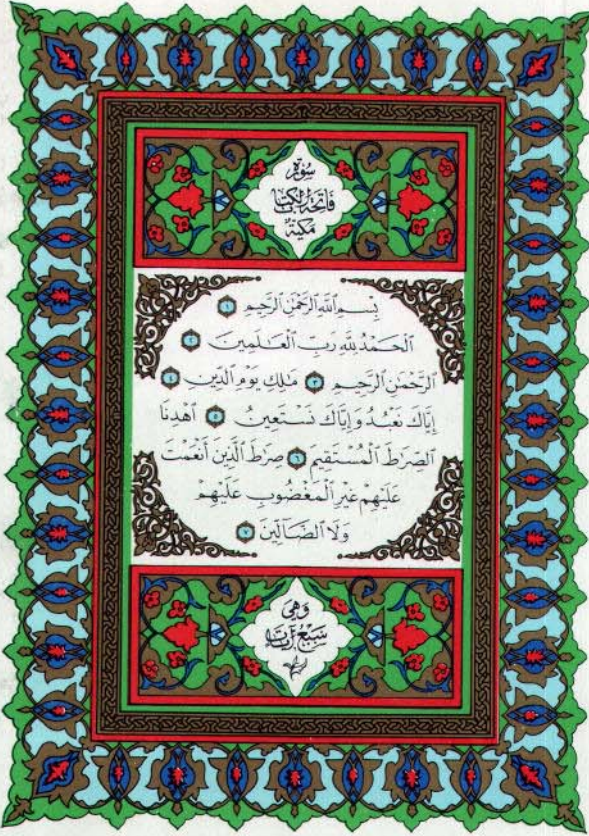 سُورَةُ
فَاتِحَةِ الْكِتَابِ
مَكِّيَّةٌ
بِسْمِ ٱللَّهِ ٱلرَّحْمَٰنِ ٱلرَّحِيمِ ١
ٱلْحَمْدُ لِلَّهِ رَبِّ ٱلْعَـٰلَمِينَ ٢
ٱلرَّحْمَٰنِ ٱلرَّحِيمِ ٣ مَـٰلِكِ يَوْمِ ٱلدِّينِ ٤
إِيَّاكَ نَعْبُدُ وَإِيَّاكَ نَسْتَعِينُ ٥ ٱهْدِنَا
ٱلصِّرَٰطَ ٱلْمُسْتَقِيمَ ٦ صِرَٰطَ ٱلَّذِينَ أَنْعَمْتَ
عَلَيْهِمْ غَيْرِ ٱلْمَغْضُوبِ عَلَيْهِمْ
وَلَا ٱلضَّآلِّينَ ٧
وَهِيَ
سَبْعُ آيَاتٍ